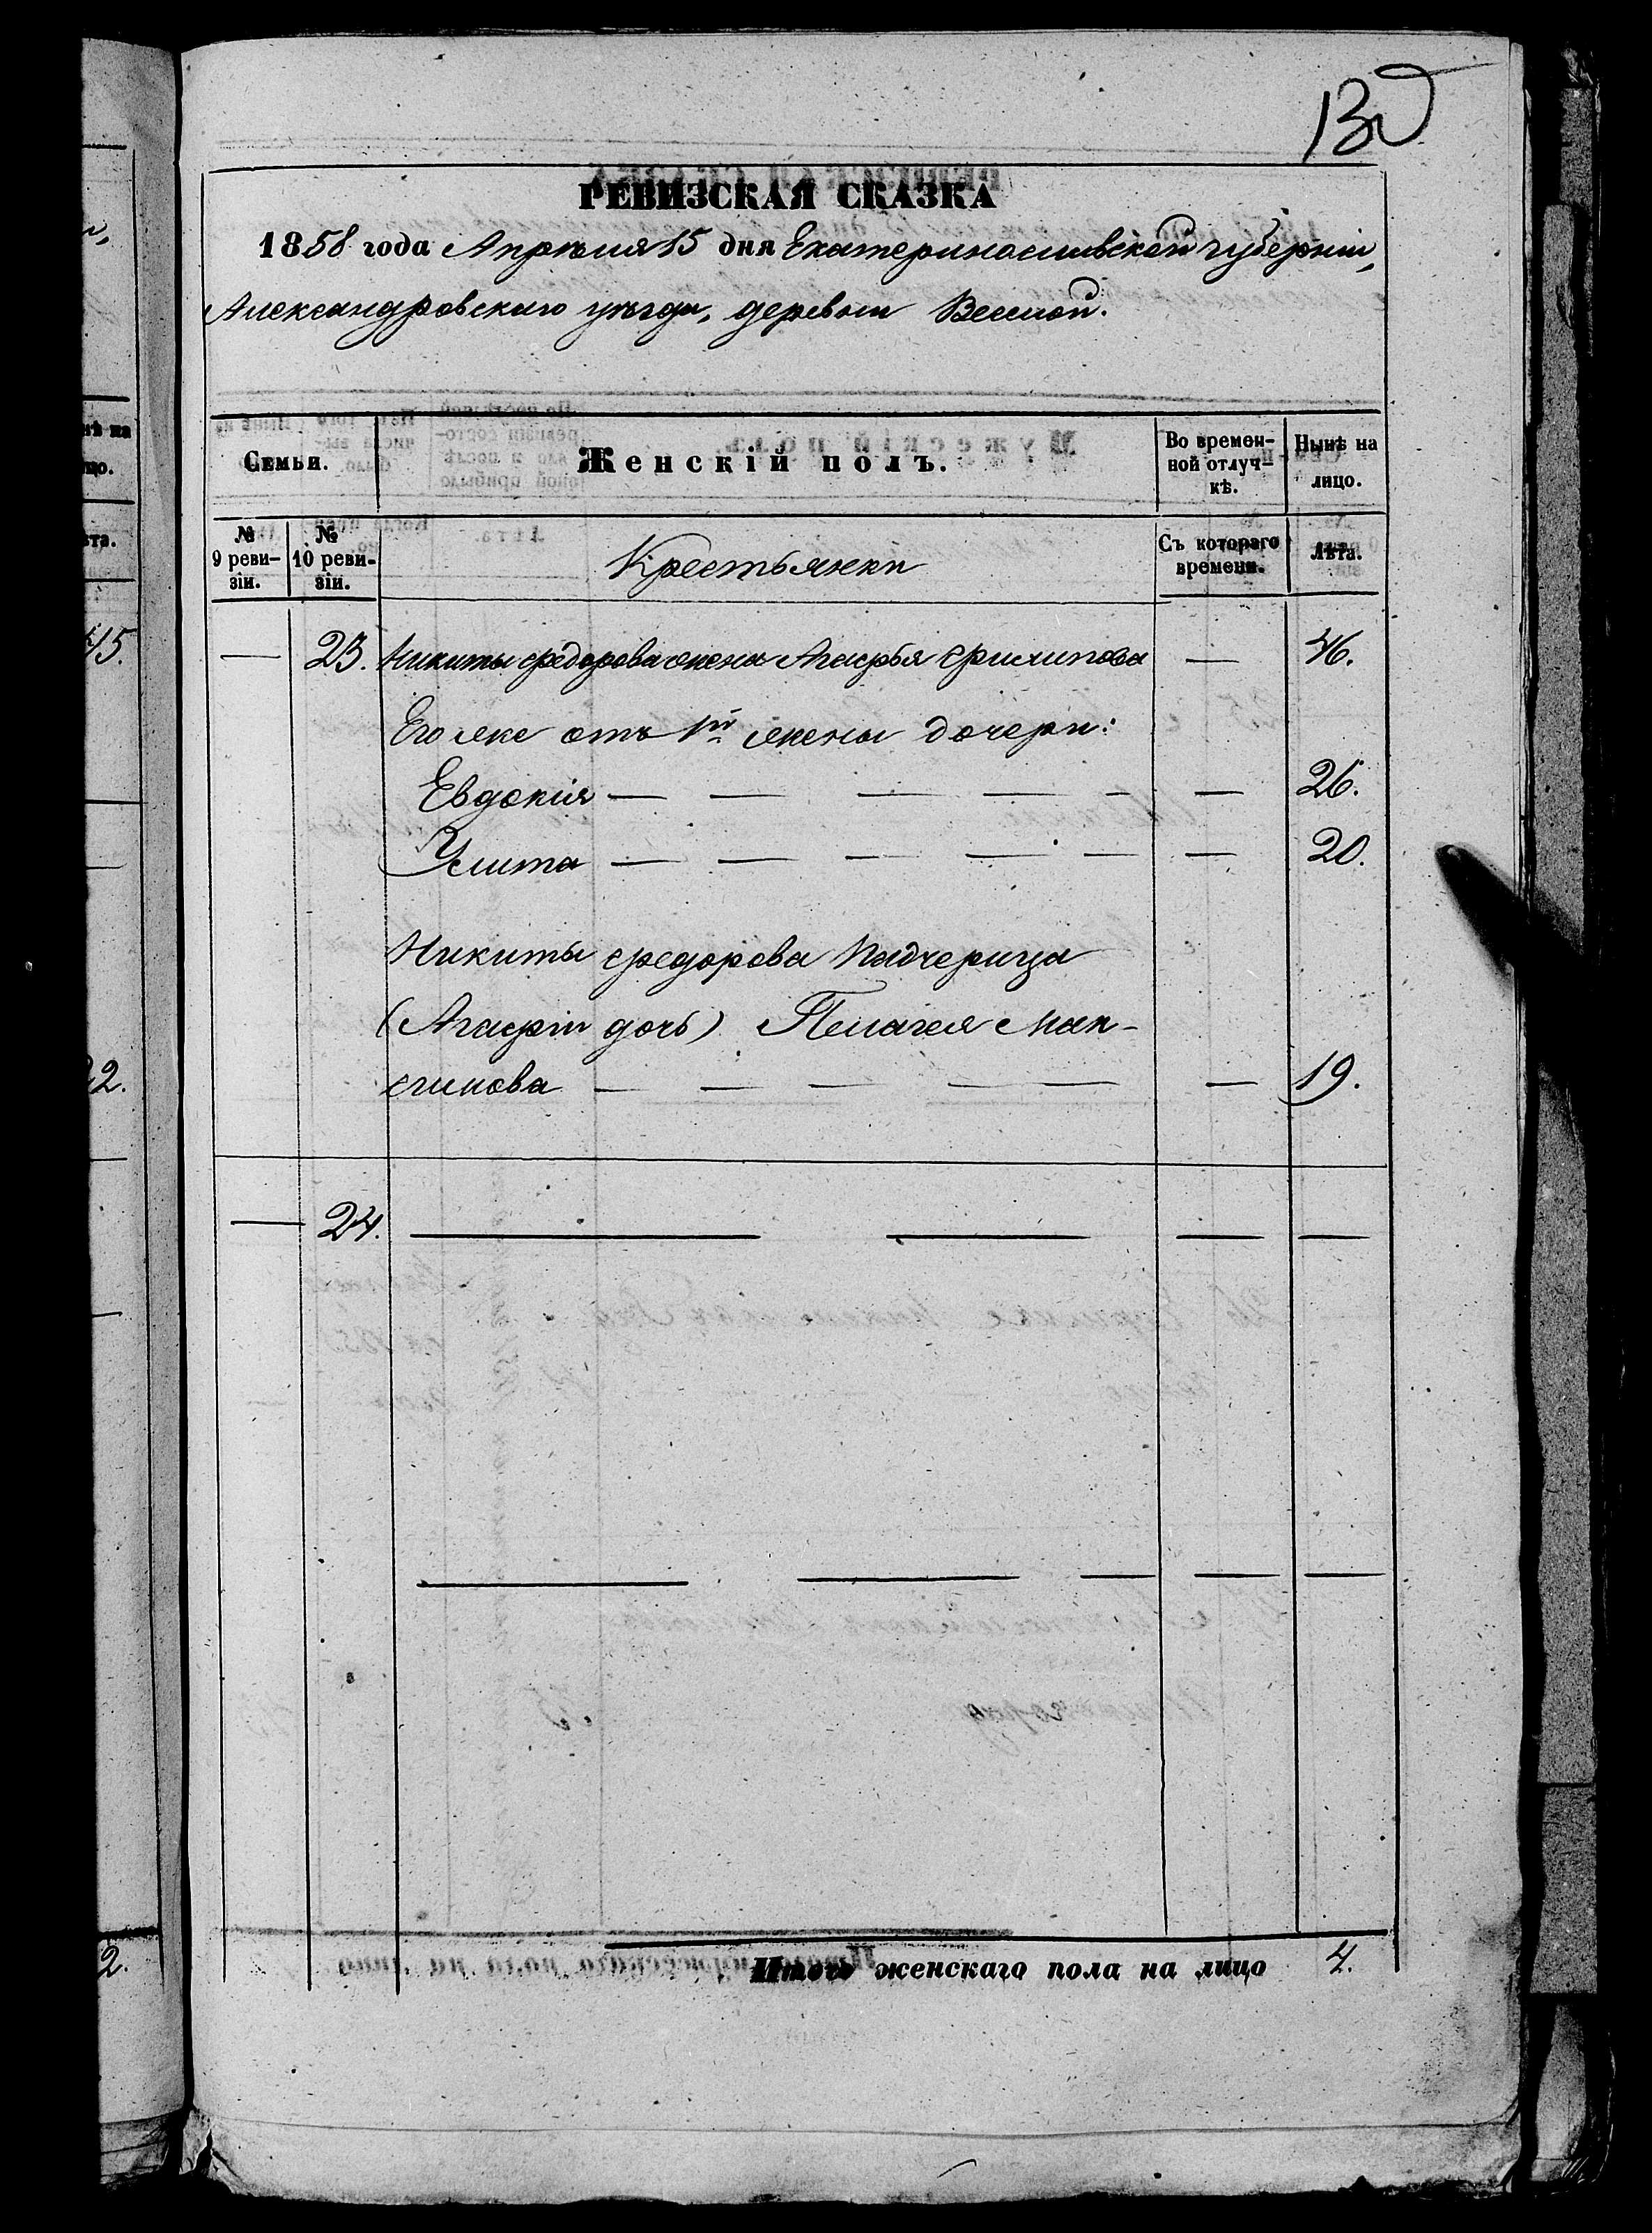 РЕВИЗСКАЯ СКАЗКА
1858 года Апрѣля 15 дня Екатеринославской губерніи,
Александровскаго уѣзда, деревни Веселой.
Семьи.
Женскій полъ.
Во времен-
ной отлуч-
кѣ.
Нынѣ на
лицо.
№
9 реви-
зіи.
№
10 реви-
зіи.
Крестьянки
Съ котораго
времени.
Лѣта.
— 23. Никиты Федорова жена Агафья Филипова — 46.
Его же отъ 1й жены дочери:
Евдокія — — — — — — 26.
Улита — — — — — — 20.
Никиты Федорова падчерица
(Агафіи дочь) Пелагея Мак-
симова — — — — — — 19.
— 24. — — — —
— — — — —
Итого женскаго пола на лицо 4.
45.
22.
2.